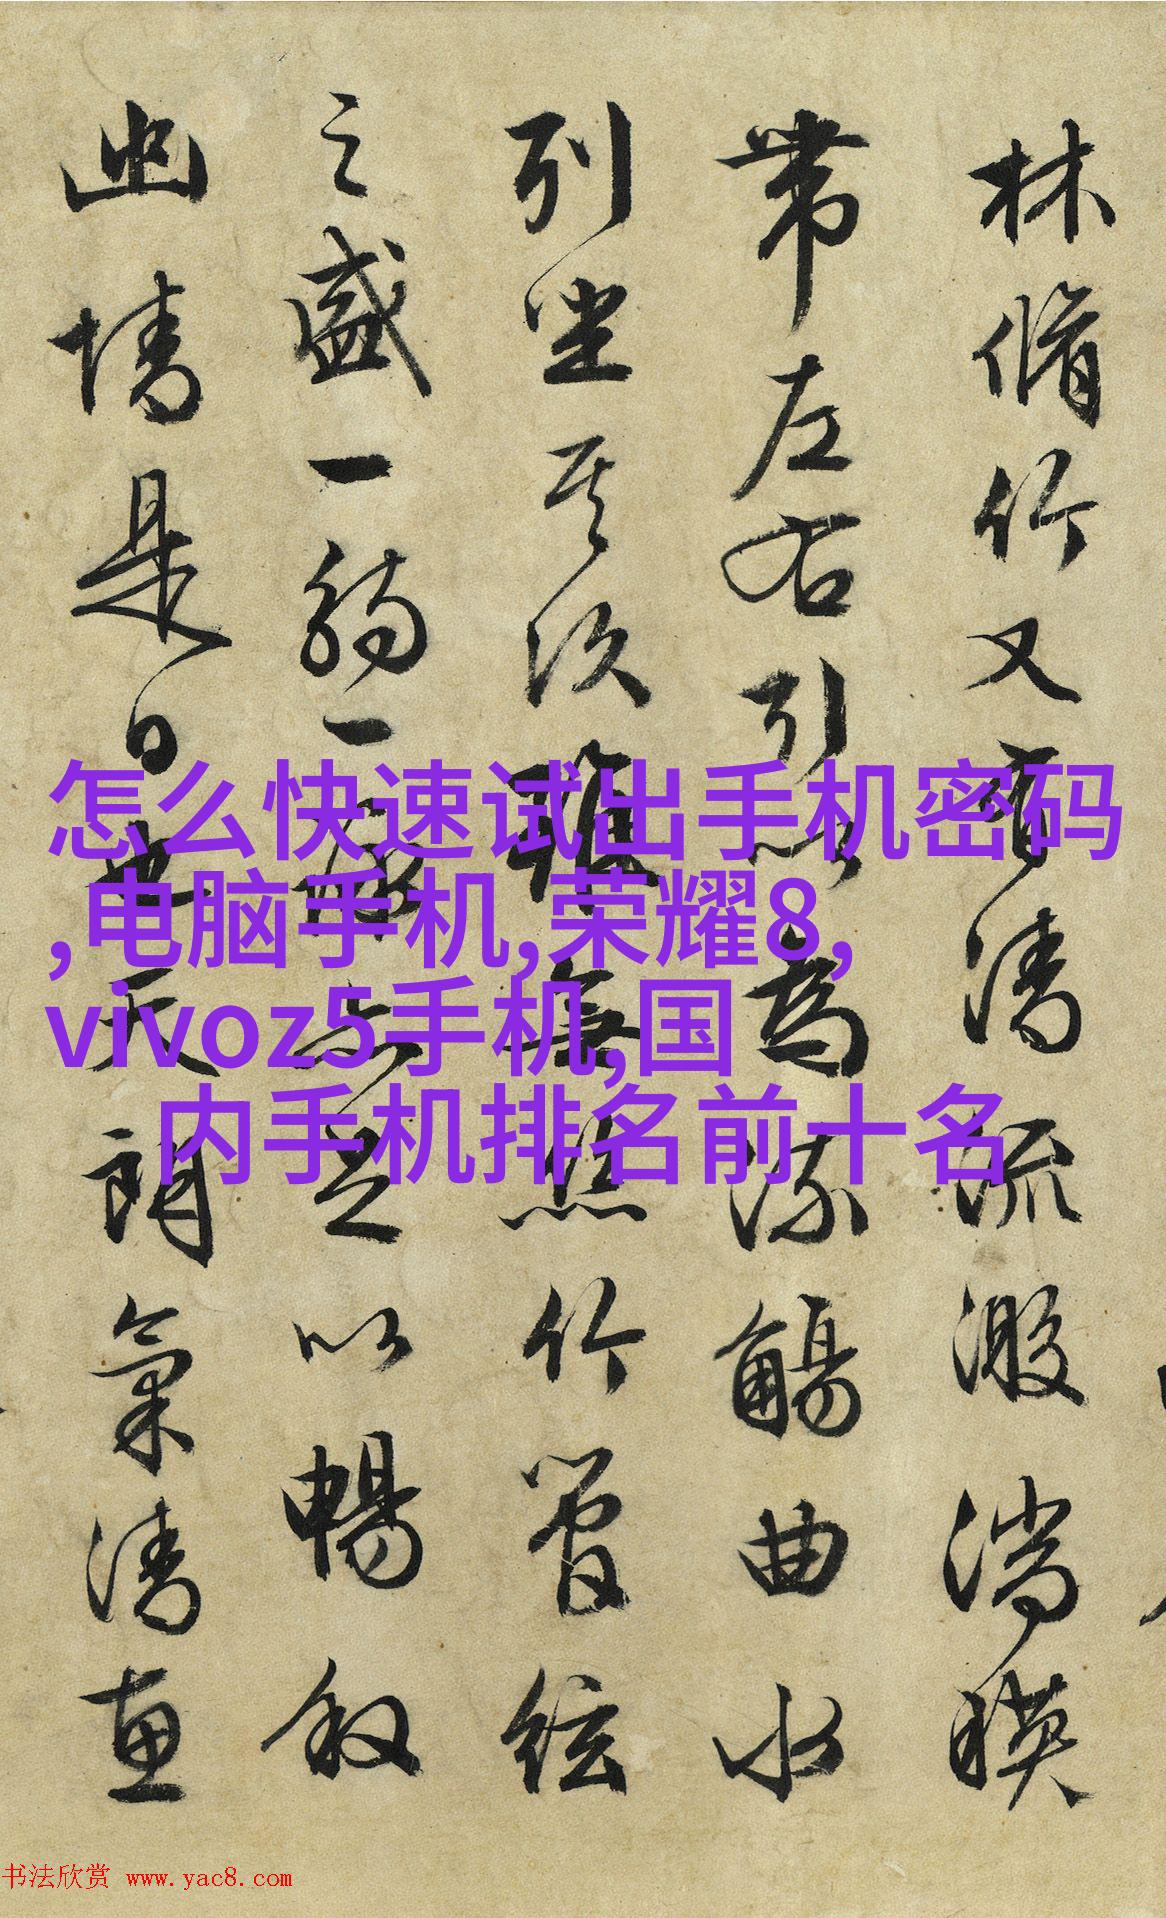 林脩竹又有清流激湍暎
帶左右引以為流觴曲水
列坐其次雖無絲竹管弦
之盛一觴一詠亦足以暢敘
幽情是日也天朗氣清惠
怎么快速试出手机密码
,电脑手机,荣耀8,
vivoz5手机,国
内手机排名前十名
书法欣赏 www.yac8.com